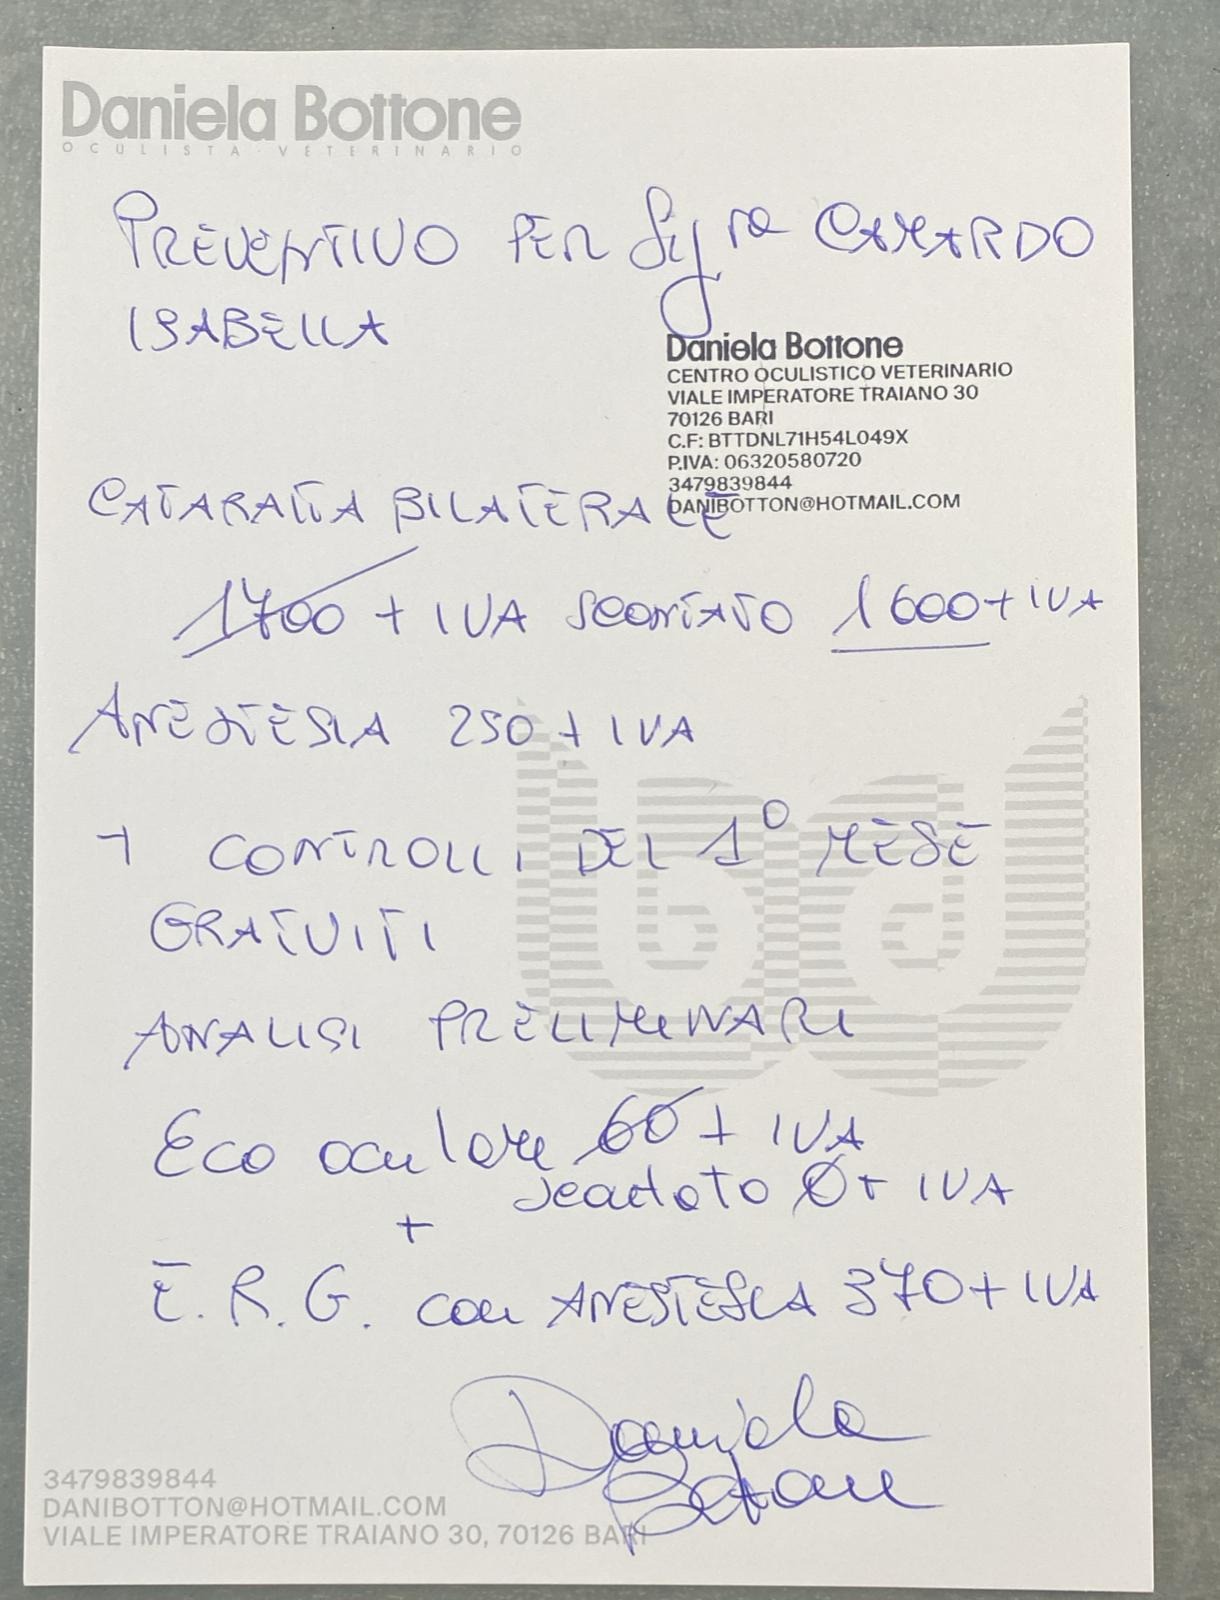 Daniela Bottone
OCULISTA VETERINARIO
PREVENTIVO PER Sig ra CAMARDO
ISABELLA
Daniela Bottone
CENTRO OCULISTICO VETERINARIO
VIALE IMPERATORE TRAIANO 30
70126 BARI
C.F: BTTDNL71H54L049X
P.IVA: 06320580720
3479839844
DANIBOTTON@HOTMAIL.COM
CATARATTA BILATERALE
1700 + IVA SCONTATO 1600 + IVA
ANESTESIA 250 + IVA
+ CONTROLLI DEL 1° MESE
GRATUITI
bd
ANALISI PRELIMINARI
Eco oculare 60 + IVA
scontato 0 + IVA
+
E.R.G. con ANESTESIA 370 + IVA
Daniela
Bottone
3479839844
DANIBOTTON@HOTMAIL.COM
VIALE IMPERATORE TRAIANO 30, 70126 BARI